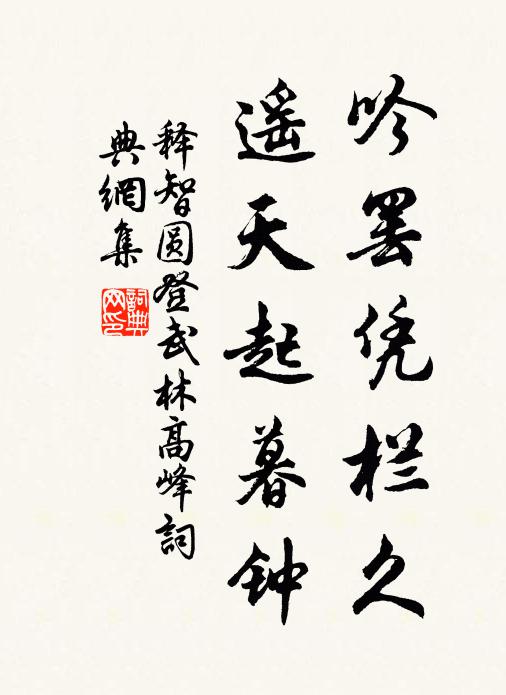 吟罢凭栏久
遥天起暮钟
释智圆登武林高峰詞
典網集
詞典网印